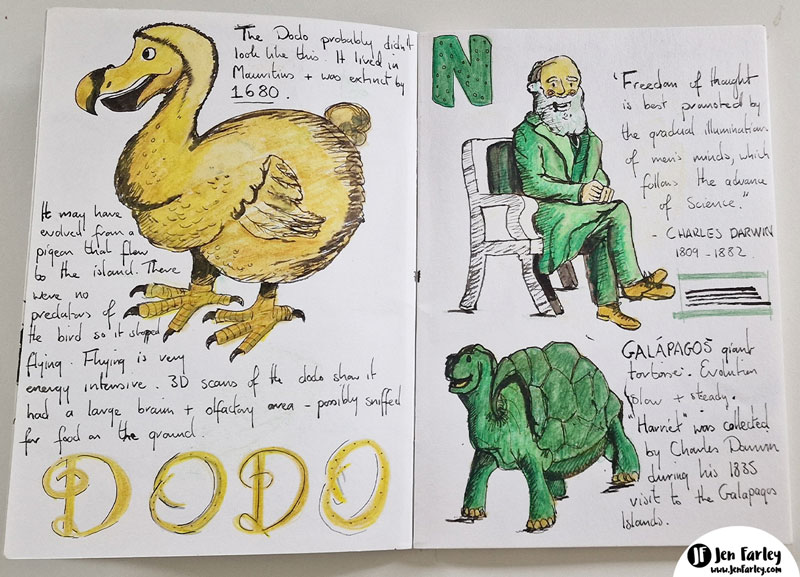 The Dodo probably didn't
look like this. It lived in
Mauritius + was extinct by
1680.
It may have
evolved from a
pigeon that flew
to the island. There
were no
predators of
the bird so it stopped
flying. Flying is very
energy intensive. 3D scans of the dodo show it
had a large brain + olfactory area - possibly sniffed
for food on the ground.
DODO
N
"Freedom of thought
is best promoted by
the gradual illumination
of men's minds, which
follows the advance
of Science."
- CHARLES DARWIN
1809 - 1882.
GALÁPAGOS giant
tortoise. Evolution
slow + steady.
"Harriet" was collected
by Charles Darwin
during his 1835
visit to the Galapagos
Islands.
JF Jen Farley
www.JenFarley.com